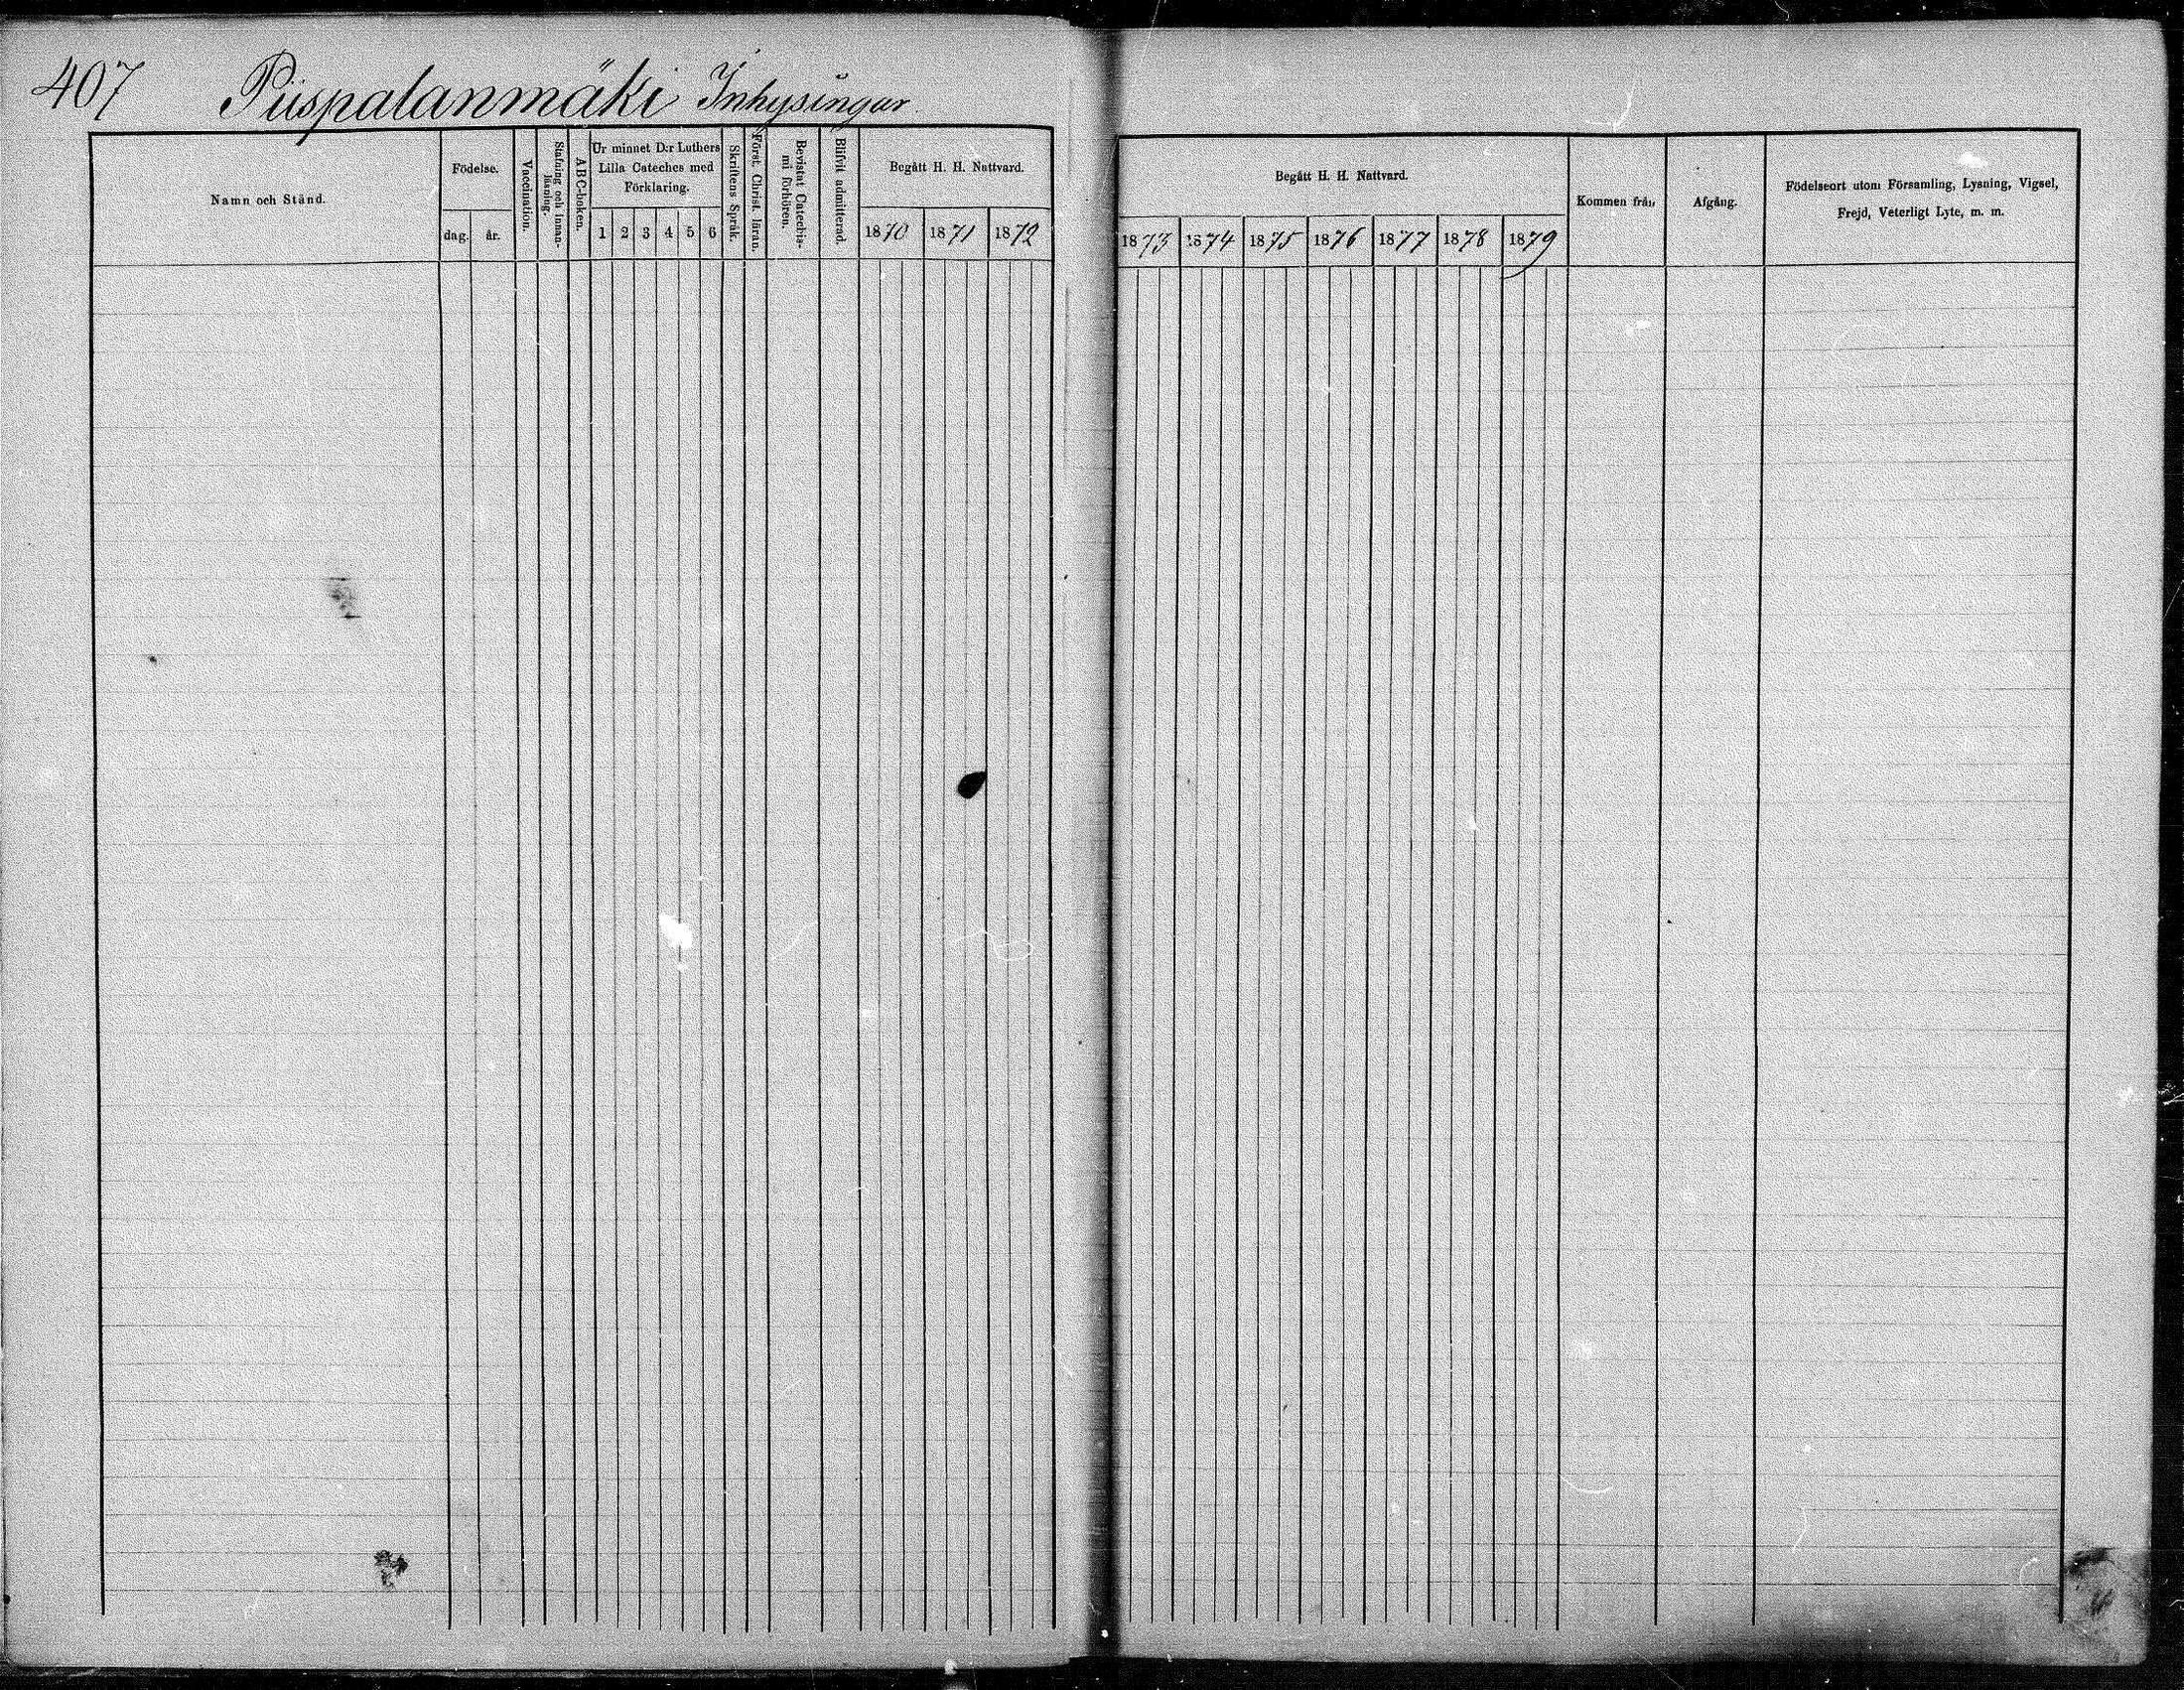 407 Piispalanmäki Inhysingar
Namn och Stånd.
Födelse.
dag. år.
Vaccination.
Stafning och innan-
läsning.
ABC-boken.
Ur minnet D:r Luthers
Lilla Cateches med
Förklaring.
1 2 3 4 5 6
Skriftens Språk.
Först. Christ. läran.
Bevistat Catechis-
mi förhören.
Blifvit admitterad.
Begått H. H. Nattvard.
1870 1871 1872
Begått H. H. Nattvard.
1873 1874 1875 1876 1877 1878 1879
Kommen från,
Afgång.
Födelseort utom Församling, Lysning, Vigsel,
Frejd, Veterligt Lyte, m. m.